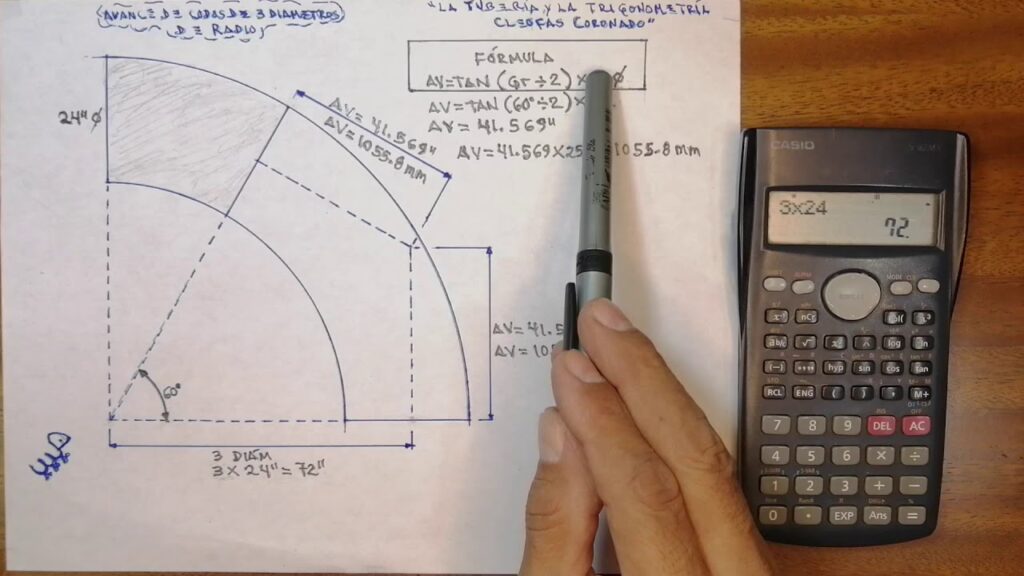 (AVANCE DE CODAS DE 3 DIAMETROS
DE RADIO)
"LA TUBERIA, Y LA TRIGONOMETRÍA
CLEOFAS CORONADO"
FÓRMULA
AV=TAN (Gr÷2) × Ø
AV=TAN (60°÷2)×
AV= 41.569"
AV=41.569×25 1055.8 mm
24"Ø
AV= 41.569"
AV= 1055.8 mm
AV= 41.5
AV= 105
60°
3 DIAM
3 × 24"= 72"
CASIO
3x24
72.
SHIFT ALPHA MODE CLR
x! nCr
hyp sin cos tan
RCL ENG ( ) , M+
7 8 9 DEL AC
4 5 6 × ÷
1 2 3 + −
0 · EXP Ans =